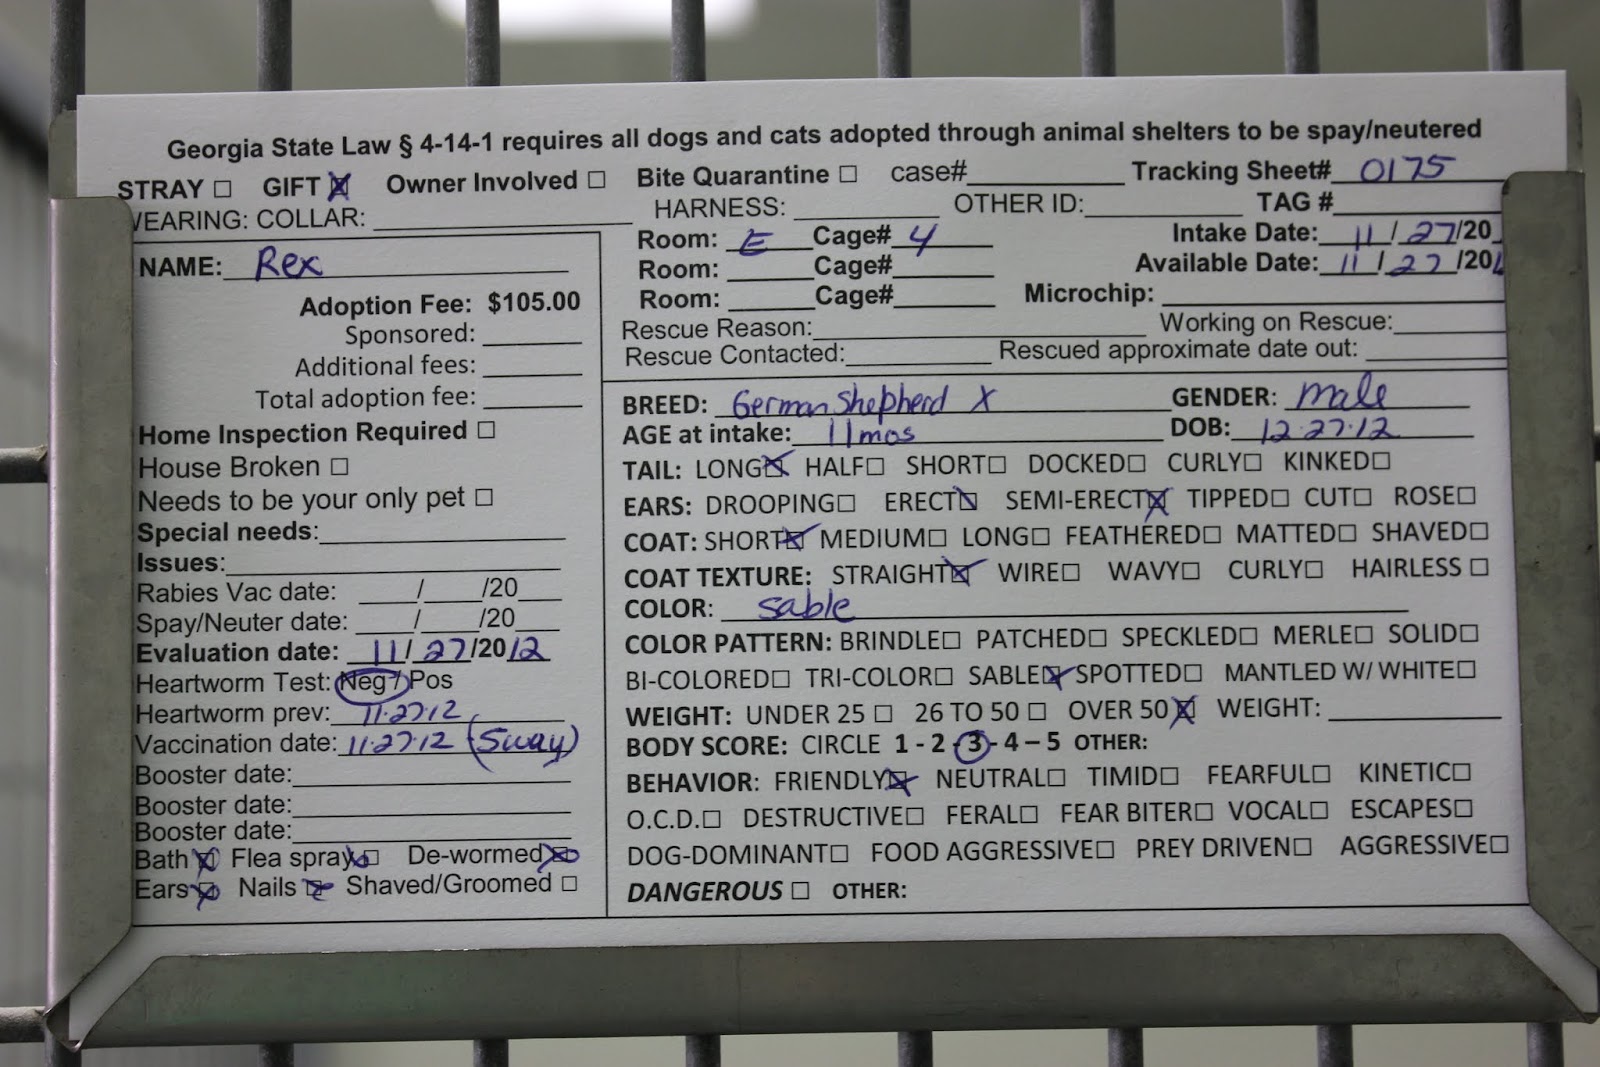 Georgia State Law § 4-14-1 requires all dogs and cats adopted through animal shelters to be spay/neutered
STRAY ☐ GIFT ☒ Owner Involved ☐ Bite Quarantine ☐ case#________ Tracking Sheet# 0175
WEARING: COLLAR: ________ HARNESS: ________ OTHER ID:________ TAG #________
NAME: Rex
Adoption Fee: $105.00
Sponsored: ______
Additional fees: ______
Total adoption fee: ______
Home Inspection Required ☐
House Broken ☐
Needs to be your only pet ☐
Special needs:________
Issues:________
Rabies Vac date: ____/____/20___
Spay/Neuter date: ____/____/20___
Evaluation date: 11/27/2012
Heartworm Test: Neg / Pos
Heartworm prev: 11·27·12
Vaccination date: 11·27·12 (5way)
Booster date:________
Booster date:________
Booster date:________
Bath ☒ Flea spray ☒ De-wormed ☒
Ears ☒ Nails ☒ Shaved/Groomed ☐
Room: E Cage# 4 Intake Date: 11/27/20
Room: ______ Cage#______ Available Date: 11/27/20
Room: ______ Cage#______ Microchip: ________
Rescue Reason:________ Working on Rescue:________
Rescue Contacted:________ Rescued approximate date out: ________
BREED: German Shepherd X GENDER: male
AGE at intake: 11mos DOB: 12·27·12
TAIL: LONG☒ HALF☐ SHORT☐ DOCKED☐ CURLY☐ KINKED☐
EARS: DROOPING☐ ERECT☒ SEMI-ERECT☒ TIPPED☐ CUT☐ ROSE☐
COAT: SHORT☒ MEDIUM☐ LONG☐ FEATHERED☐ MATTED☐ SHAVED☐
COAT TEXTURE: STRAIGHT☒ WIRE☐ WAVY☐ CURLY☐ HAIRLESS ☐
COLOR: sable
COLOR PATTERN: BRINDLE☐ PATCHED☐ SPECKLED☐ MERLE☐ SOLID☐
BI-COLORED☐ TRI-COLOR☐ SABLE☒ SPOTTED☐ MANTLED W/ WHITE☐
WEIGHT: UNDER 25 ☐ 26 TO 50 ☐ OVER 50☒ WEIGHT: ________
BODY SCORE: CIRCLE 1 - 2 - 3 - 4 – 5 OTHER:
BEHAVIOR: FRIENDLY☒ NEUTRAL☐ TIMID☐ FEARFUL☐ KINETIC☐
O.C.D.☐ DESTRUCTIVE☐ FERAL☐ FEAR BITER☐ VOCAL☐ ESCAPES☐
DOG-DOMINANT☐ FOOD AGGRESSIVE☐ PREY DRIVEN☐ AGGRESSIVE☐
DANGEROUS ☐ OTHER: